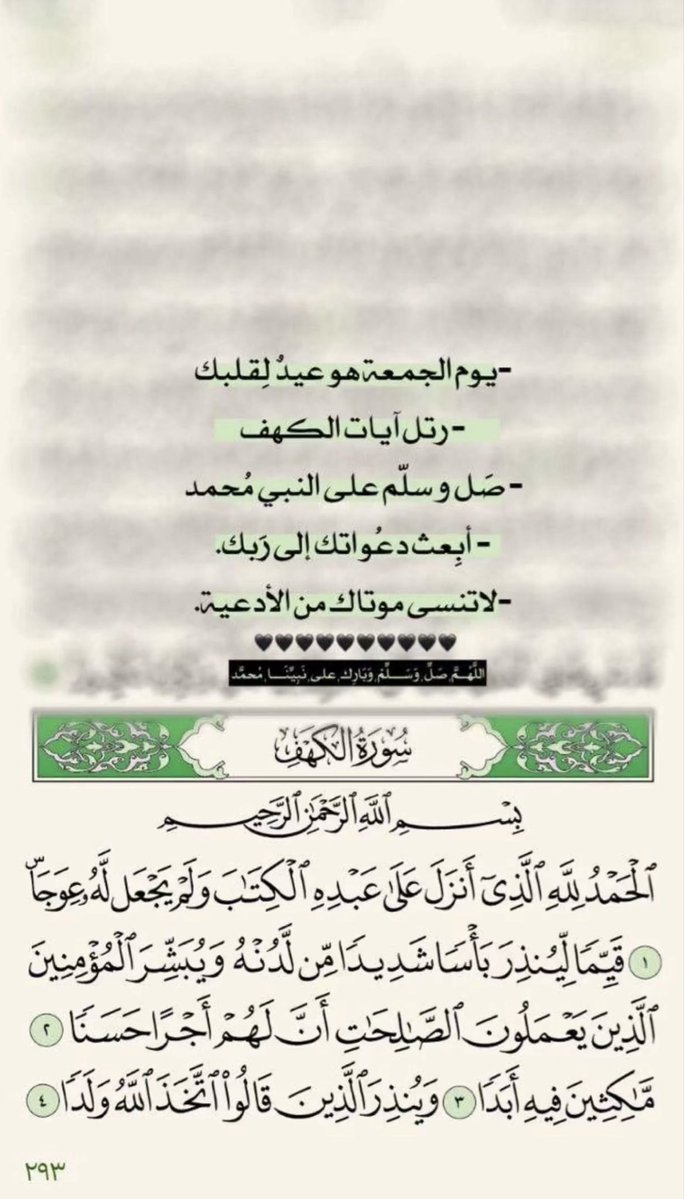 -يوم الجمعة هو عيدٌ لِقلبك
-رتل آيات الكهف
-صَل وسلّم على النبي مُحمد
-أبِعث دعُواتك إلى رَبك.
-لاتنسى موتاك من الأدعية.
🖤🖤🖤🖤🖤🖤🖤🖤🖤🖤
اللَّهُمَّ صَلِّ وَسَلِّمْ وَبَارِك على نَبِيِّنَا مُحمَّد
سُورَةُ الكَهْفِ
بِسْمِ ٱللَّهِ ٱلرَّحْمَٰنِ ٱلرَّحِيمِ
ٱلْحَمْدُ لِلَّهِ ٱلَّذِىٓ أَنزَلَ عَلَىٰ عَبْدِهِ ٱلْكِتَٰبَ وَلَمْ يَجْعَل لَّهُۥ عِوَجَاۜ
١ قَيِّمًا لِّيُنذِرَ بَأْسًا شَدِيدًا مِّن لَّدُنْهُ وَيُبَشِّرَ ٱلْمُؤْمِنِينَ
ٱلَّذِينَ يَعْمَلُونَ ٱلصَّٰلِحَٰتِ أَنَّ لَهُمْ أَجْرًا حَسَنًا ٢
مَّٰكِثِينَ فِيهِ أَبَدًا ٣ وَيُنذِرَ ٱلَّذِينَ قَالُوا۟ ٱتَّخَذَ ٱللَّهُ وَلَدًا ٤
٢٩٣